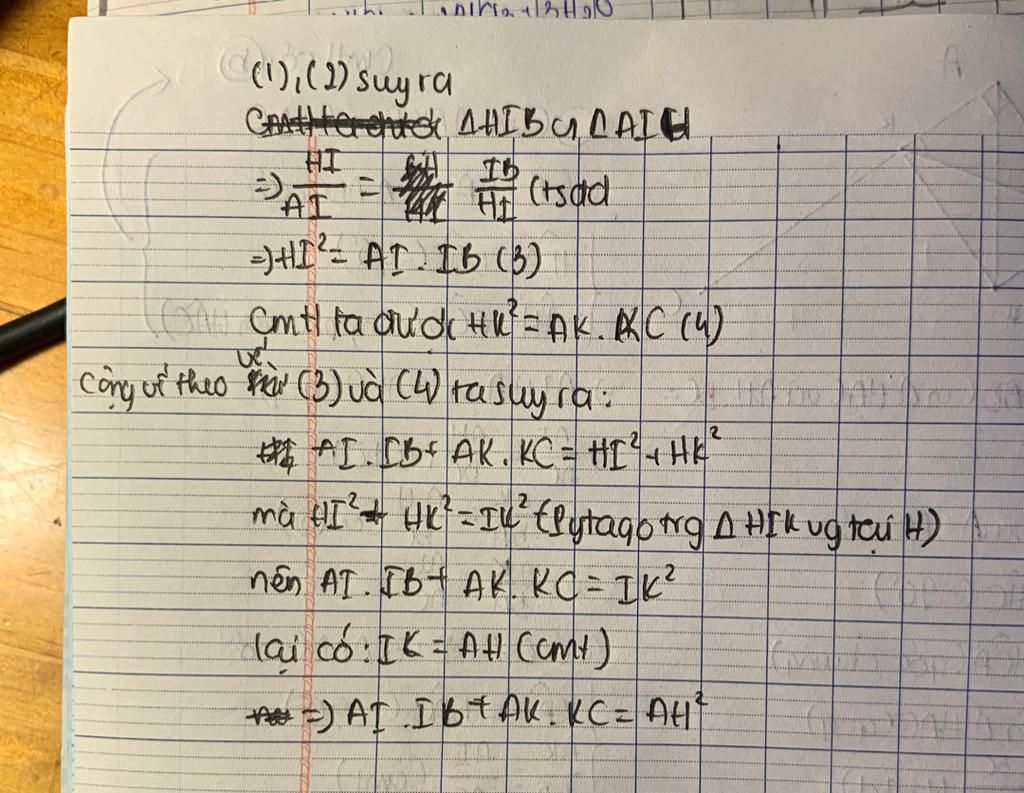 (1), (2) suy ra
ΔHIB ∽ ΔAIH
=> HI/AI = IB/HI (tsđd
=> HI² = AI . IB (3)
CmH ta được HK² = AK . KC (4)
Cộng vế theo vế (3) và (4) ta suy ra:
AI . IB + AK . KC = HI² + HK²
mà HI² + HK² = IK² (Pytago trg Δ HIK vg tại H)
nên AI . IB + AK . KC = IK²
lại có : IK = AH (cmt)
=> AI . IB + AK . KC = AH²